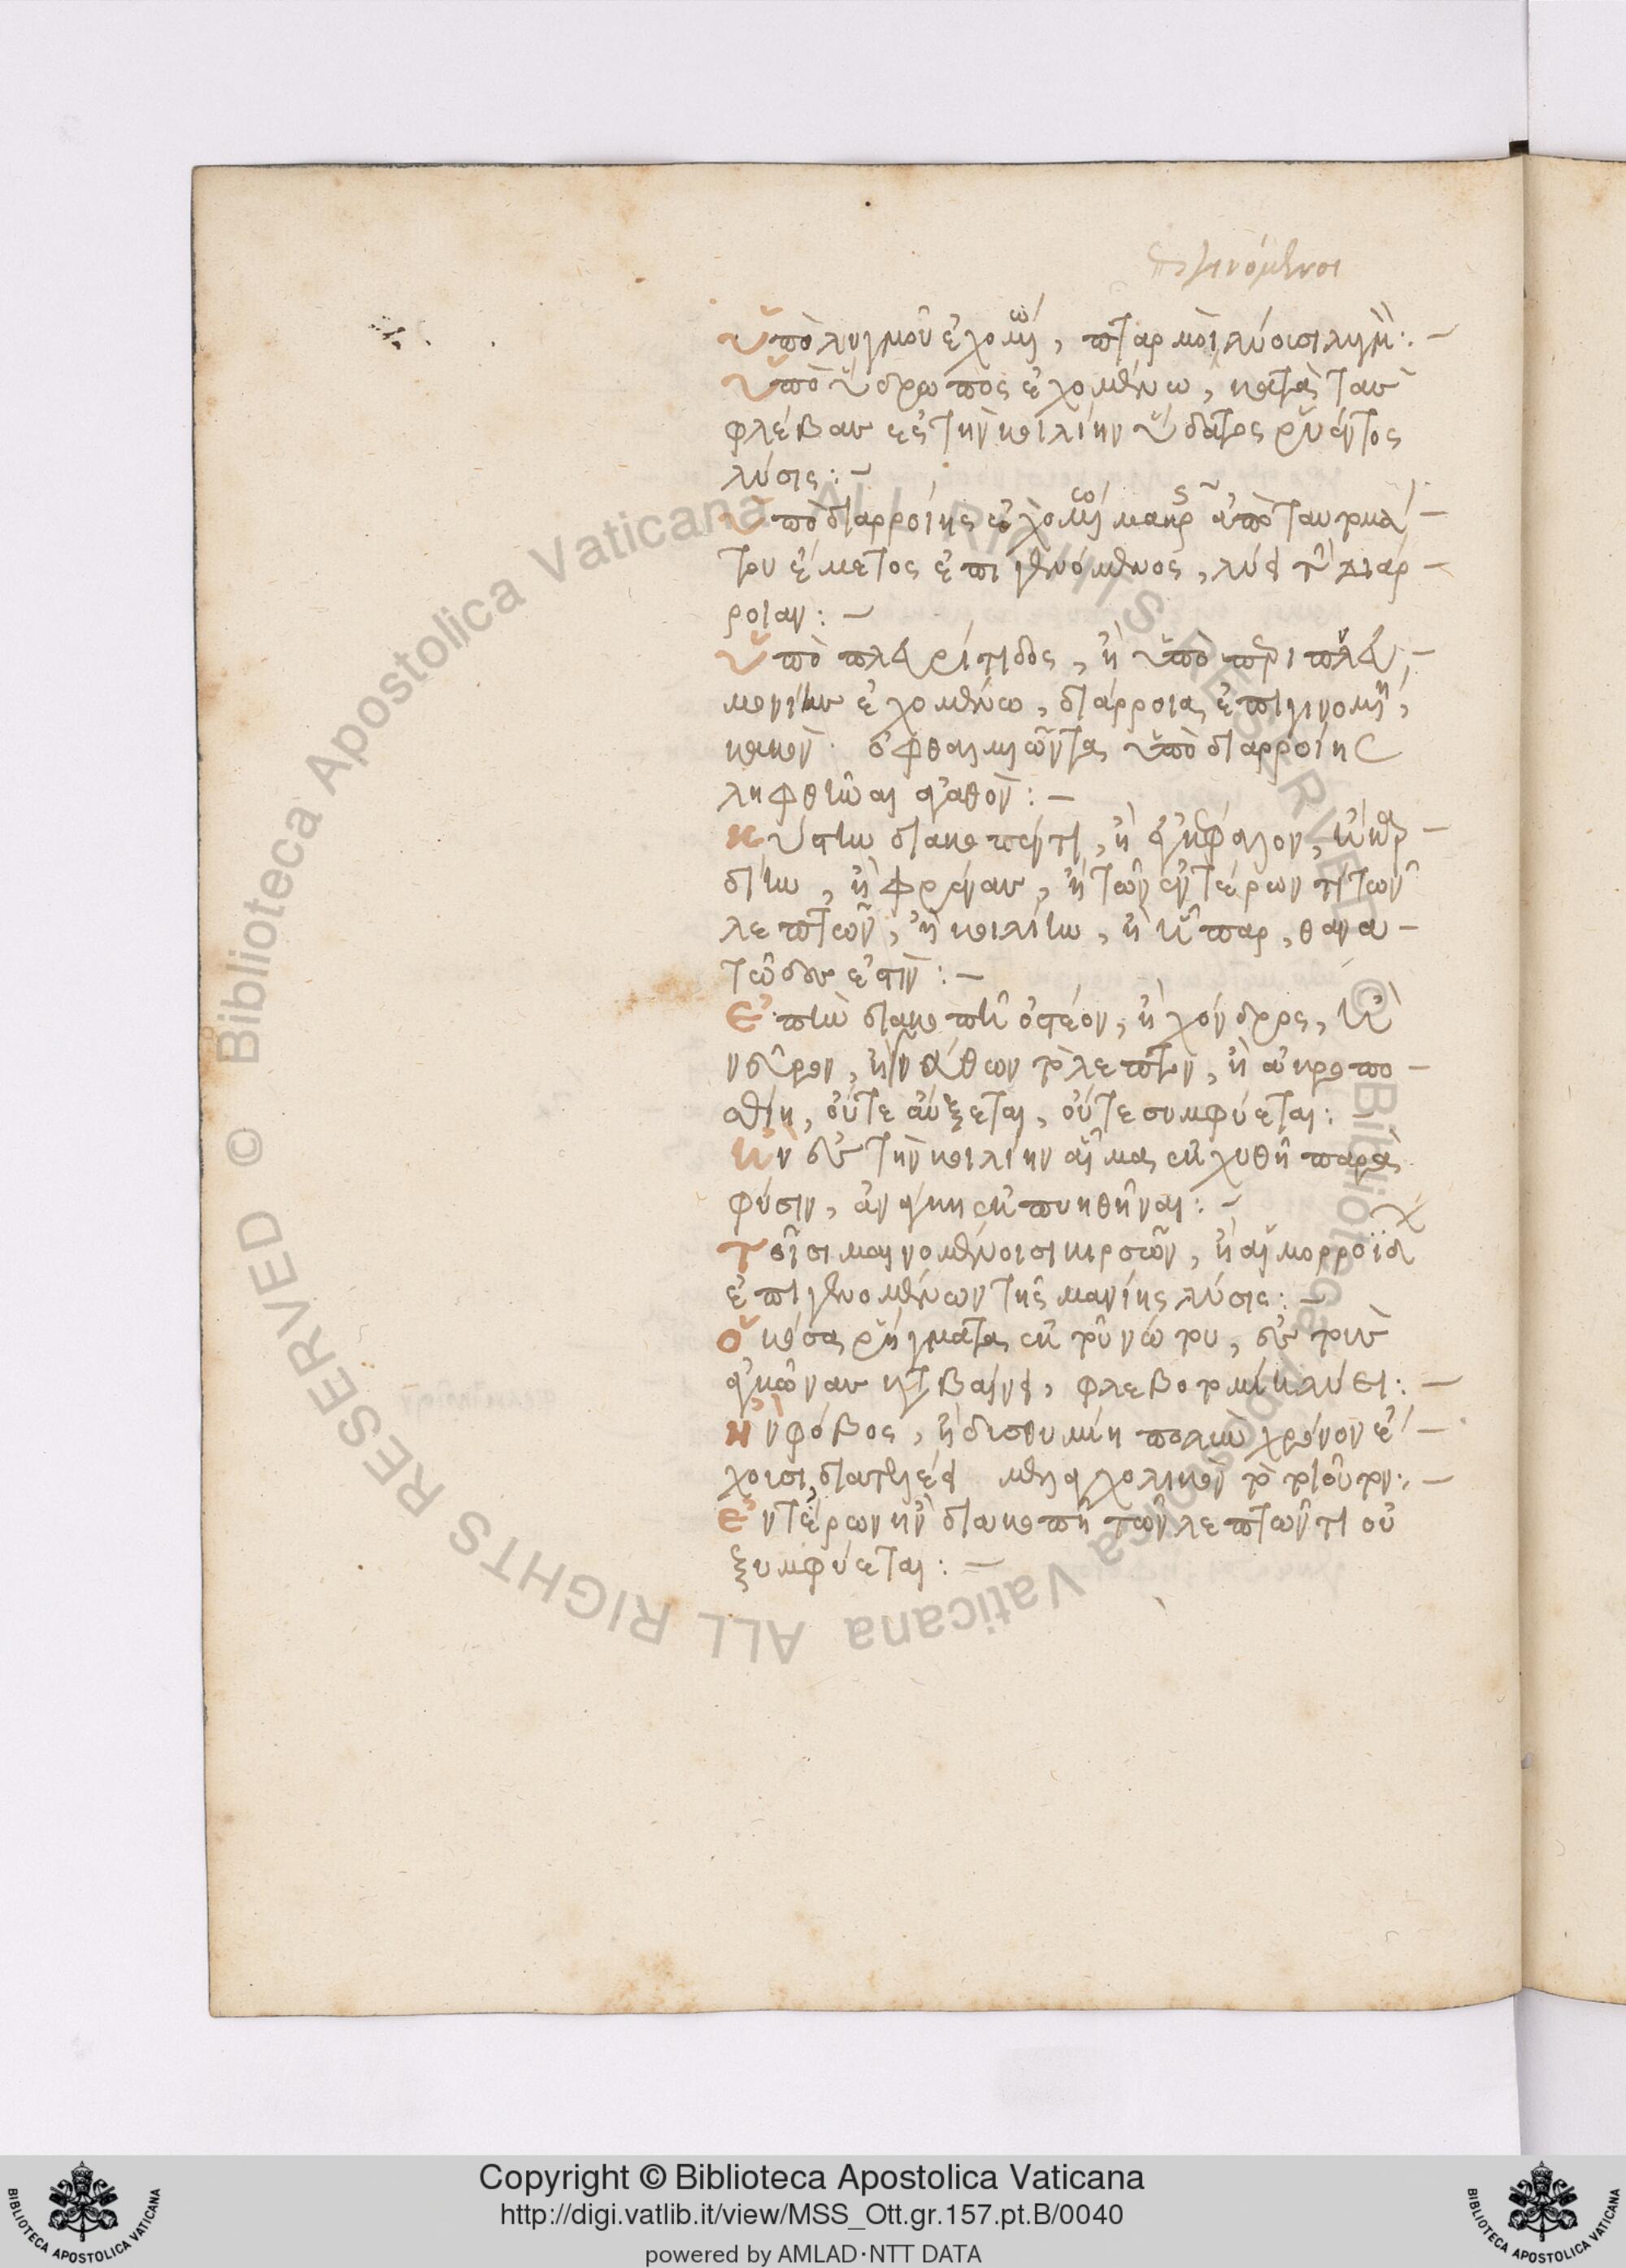 ἐπιγινόμενοι
ὑπὸ λυγμοῦ ἐχομένω, πταρμοὶ λύουσι λυγμὸν:-
ὑπὸ ὕδρωπος ἐχομένω, κατὰ τὰς
φλέβας εἰς τὴν κοιλίην ὕδατος ῥυέντος
λύσις:-
ὑπὸ διαρροίης ἐχομένω μακρῆς ἀπὸ ταυτομά-
του ἔμετος ἐπιγενόμενος, λύει τὴν διάρ-
ροιαν:-
ὑπὸ πλευρίτιδος, ἢ ὑπὸ περιπλευ-
μονίης ἐχομένω, διάρροια ἐπιγινομένη,
κακὸν· ὀφθαλμιῶντα ὑπὸ διαρροίης
ληφθῆναι ἀγαθὸν:-
κύστιν διακοπέντι, ἢ ἐγκέφαλον, ἢ καρ-
δίην, ἢ φρένας, ἢ τῶν ἐντέρων τι τῶν
λεπτῶν, ἢ κοιλίην, ἢ ἧπαρ, θανα-
τῶδες ἐστὶν:-
ἐπὴν διακοπῆ ὀστέον, ἢ χόνδρος, ἢ
νεῦρον, ἢ γνάθων τὸ λεπτὸν, ἢ ἀκροπο-
σθίη, οὔτε αὔξεται, οὔτε συμφύεται:
ἢν ἐς τὴν κοιλίην αἷμα ἐκχυθῆ παρὰ
φύσιν, ἀνάγκη ἐκπυηθῆναι:-
τοῖσι μαινομένοισι κιρσῶν, ἢ αἱμορροΐδ
ἐπιγενομένων τῆς μανίης λύσις:-
ὁκόσα ῥήγματα ἐκ τοῦ νώτου, ἐς τοὺς
ἀγκῶνας καταβαίνει, φλεβοτομίη λύει:-
ἢν φόβος, ἢ δυσθυμίη πολὺν χρόνον ἔ-
χουσι διατελέει μελαγχολικὸν τὸ τοιοῦτον:-
ἐντέρων ἢν διακοπῆ τῶν λεπτῶν τι οὐ
ξυμφύεται:-
Copyright © Biblioteca Apostolica Vaticana
http://digi.vatlib.it/view/MSS_Ott.gr.157.pt.B/0040
powered by AMLAD·NTT DATA